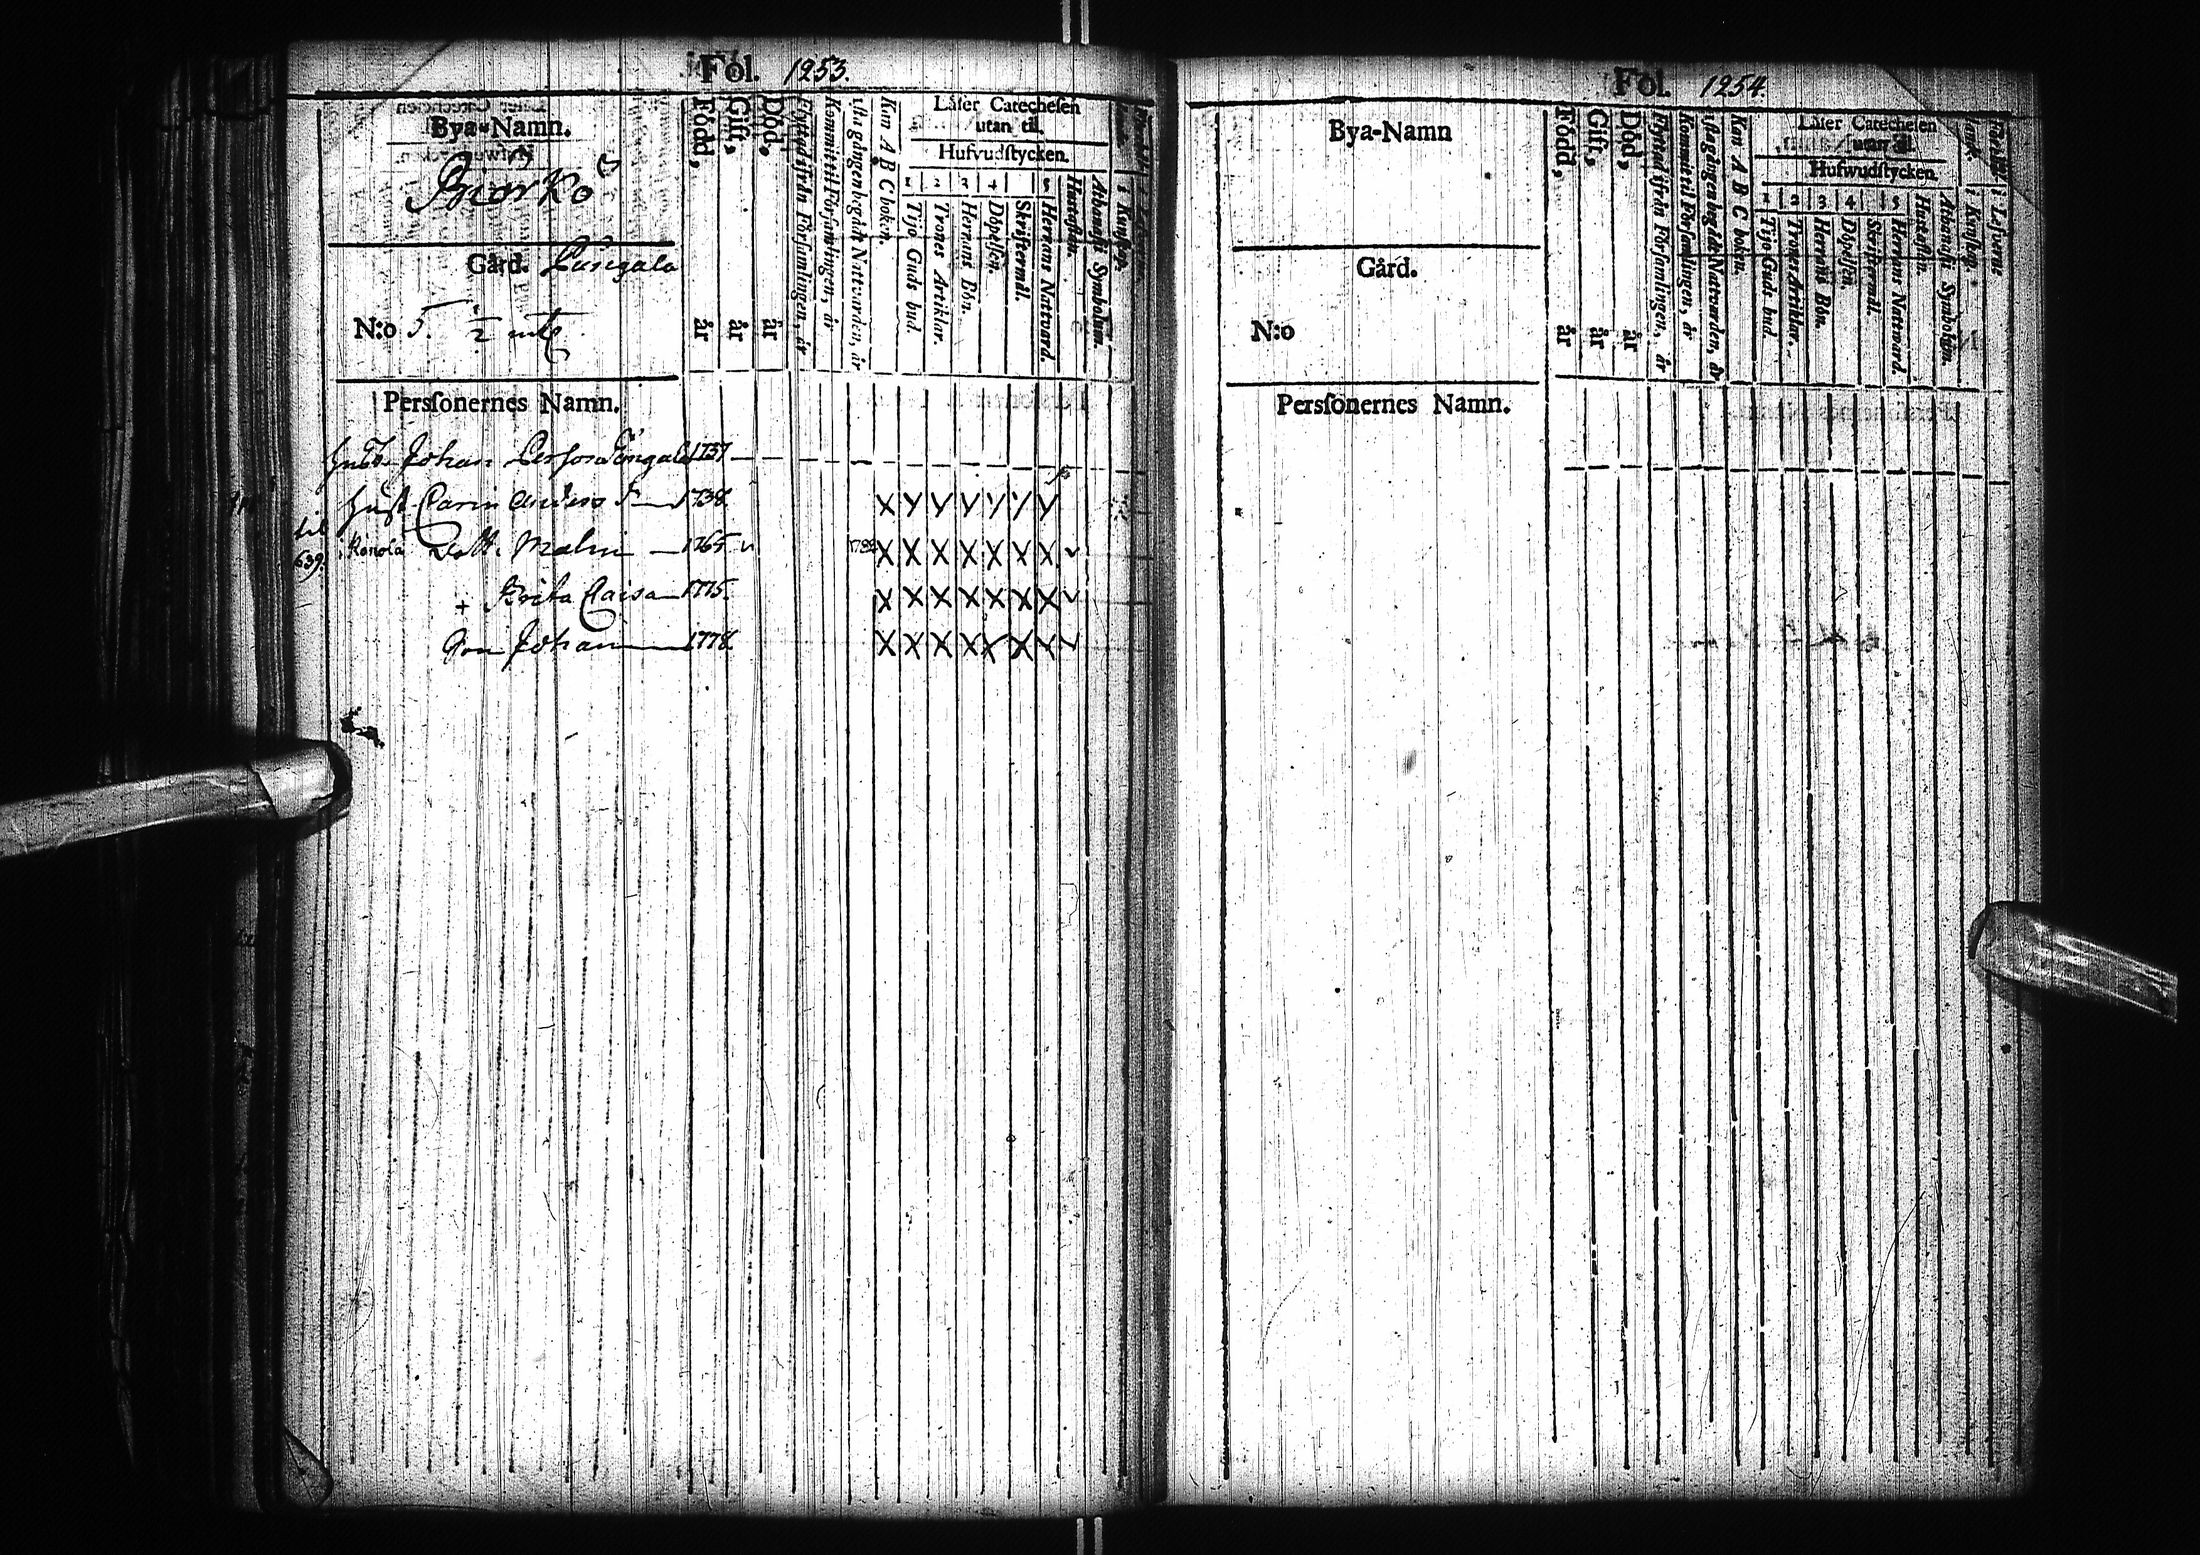 Fol. 1253.
Bya-Namn.
Biörkö
Gård. Pungala
N:o 5. 1/2 mtl
Född, år
Gift, år
Död, år
Flyttad ifrån Församlingen, år
Kommit til Församlingen, år
1sta gången begådt Nattvarden, år
Kan A B C boken.
Läser Catechesen
utan til.
Hufvudstycken.
1 2 3 4 5
Tijo Guds bud.
Trones Artiklar.
Herrans Bön.
Döpelsen.
Skriftermål.
Herrans Nattvard.
Hustaflan.
Athanasii Symbolum.
i Kunskap.
Perssonernes Namn.
Johan Persson 1737
Hust. Carin Anders D 1738
til
639. Dott. Malin 1765
+ Brita Caisa 1775.
Son Johan 1778
Fol. 1254.
Bya-Namn
Gård.
N:o
Född, år
Gift, år
Död, år
Flyttad ifrån Församlingen, år
Kommit til Församlingen, år
1sta gången begådt Nattvarden, år
Kan A B C boken.
Läser Catechesen
utan til.
Hufwudstycken.
1 2 3 4 5
Tijo Guds bud.
Trones Artiklar.
Herrans Bön.
Döpelsen.
Skriftermål.
Herrans Nattward.
Hustaflan.
Athanasii Symbolum.
i Kunskap.
i Lefverne
Perssonernes Namn.